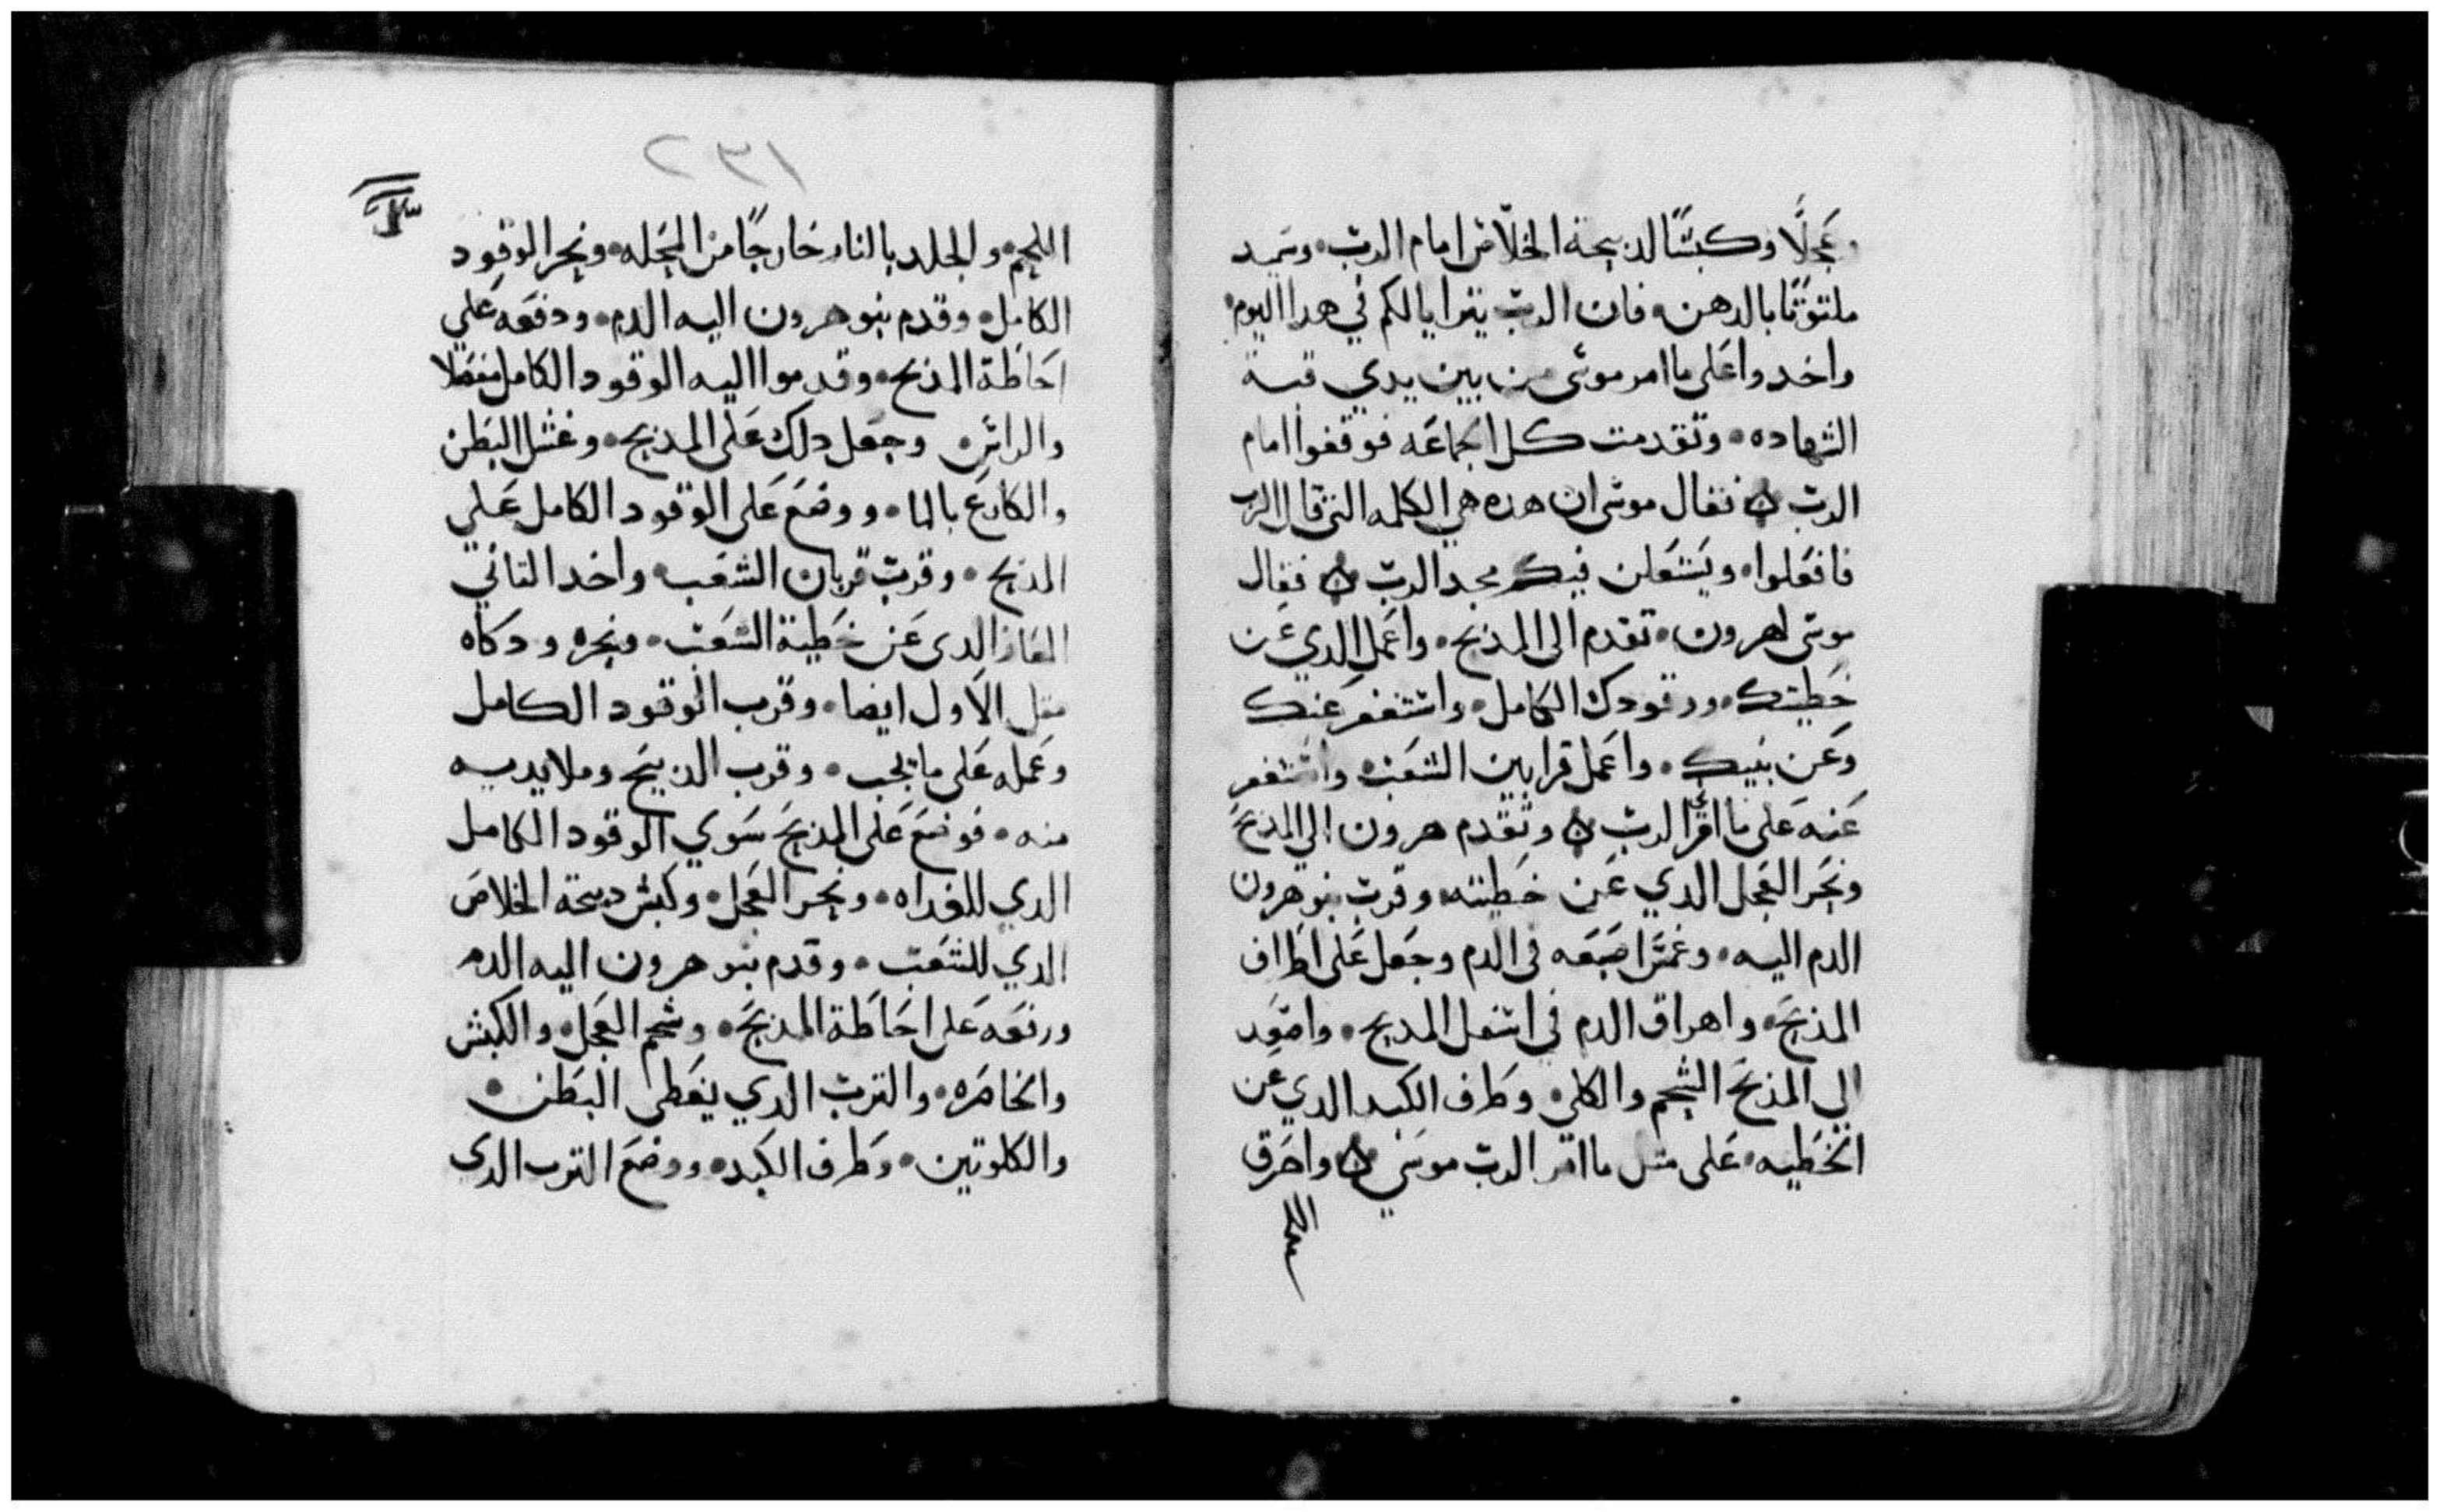 وعجلًا وكبشًا لذبيحة الخلاص امام الرب • وسميد
ملتوتًا بالدهن • فان الرب يترايا لكم في هدا اليوم •
واخدوا على ما امر موسى من بين يدي قبة
الشهاده • وتقدمت كل الجماعه فوقفوا امام
الرب فقال موسى ان هده هي الكلمه التي قال الرب
فافعلوا • ويستعلن فيكم مجد الرب فقال
موسى لهرون • تقدم الى المذبح • واعمل الدي عن
خطيتك • ووقودك الكامل • واستغفر عنك
وعن بنيك • واعمل قرابين الشعب • واستغفر
عنه على ما امر الرب وتقدم هرون الي المذبح
ونحر العجل الدي عن خطيته • وقرب بنو هرون
الدم اليه • وغمس اصبعه في الدم وجعل على اطراف
المذبح • واهراق الدم في اسفل المدبح • واصعد
الي المذبح الشحم والكلى • وطرف الكبد الدي عن
الخطيه • على متل ما امر الرب موسي واحرق
اللحم
١٣٢
اللحم • والجلد بالنار خارجًا من المحله • ونحر الوقود
الكامل • وقدم بنو هرون اليه الدم • ودفعه علي
احاطة المذبح • وقدموا اليه الوقود الكامل مفصلا
والراس • وجعل دلك على المذبح • وغسل البطن
والكارع بالما • ووضع على الوقود الكامل علي
المذبح • وقرب قربان الشعب • واخد التاني
الماعز الدي عن خطية الشعب • ونحره ودكاه
متل الاول ايضا • وقرب الوقود الكامل
وعمله على ما يجب • وقرب الذبيح وملا يديه
منه • فوضع على المذبح سوي الوقود الكامل
الدي للغداه • ونحر العجل • وكبش دبيحة الخلاص
الدي للشعب • وقدم بنو هرون اليه الدم
ورفعه على احاطة المذبح • وشحم العجل • والكبش
والخاصره • والترب الدي يغطي البطن •
والكلوتين • وطرف الكبد • ووضع الترب الدي